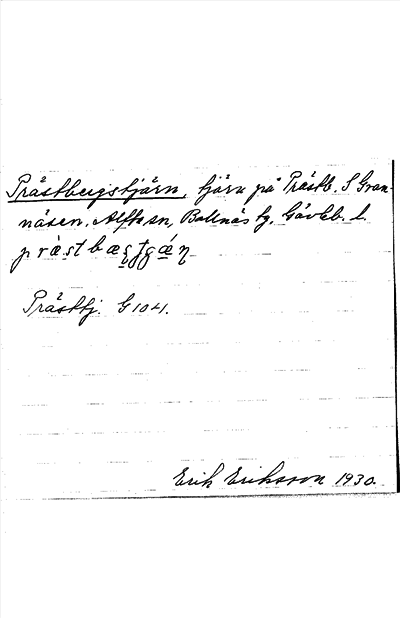 Prästbergstjärn, tjärn på Prästb. S Gran-
näsen, Alfta sn, Bollnäs tg. Gävleb. l.
Prästtj. G 1041.
Erik Eriksson 1930.